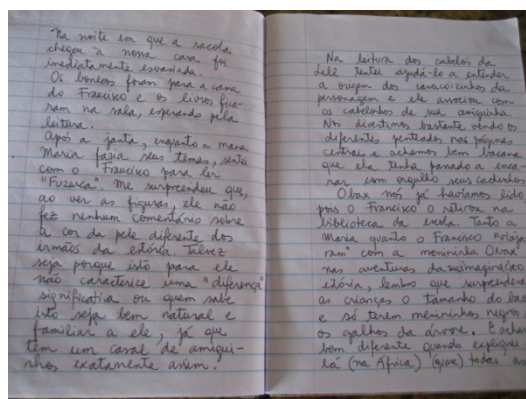 Na noite em que a sacola
chegou à nossa casa foi
imediatamente esvaziada.
Os bonecos foram para a cama
do Francisco e os livros fica-
ram na sala, esperando pela
leitura.
Após a janta, enquanto a mana
Maria fazia seus temas, sentei
com o Francisco para ler
"Fuzarca". Me surpreendeu que,
ao ver as figuras, ele não
fez nenhum comentário sobre
a cor da pele diferente dos
irmãos da estória. Talvez
seja porque isto para ele
não caracterize uma "diferença"
significativa ou quem sabe
isto seja bem natural e
familiar a ele, já que
tem um casal de amigui-
nhos exatamente assim.
Na leitura dos cabelos da
Lelê tentei ajudá-lo a entender
a origem dos caracoizinhos da
personagem e ele associou com
os cabelinhos de sua amiguinha
Nos divertimos bastante vendo os
diferentes penteados nas páginas
centrais e achamos bem bacana
que ela tenha passado a enca
rar com orgulho seus cachinhos
Obax nós já havíamos lido
pois o Francisco o retirou na
biblioteca da escola. Tanto a
Maria quanto o Francisco "viaja
ram" com a menininha Obax
nas aventuras da sua imaginação
estória, lembro que surpreendeu
as crianças o tamanho do bao
e só terem menininhos negros
os galhos da árvore. E acha
bem diferente quando expliquei
lá (na África) (quase) todas as